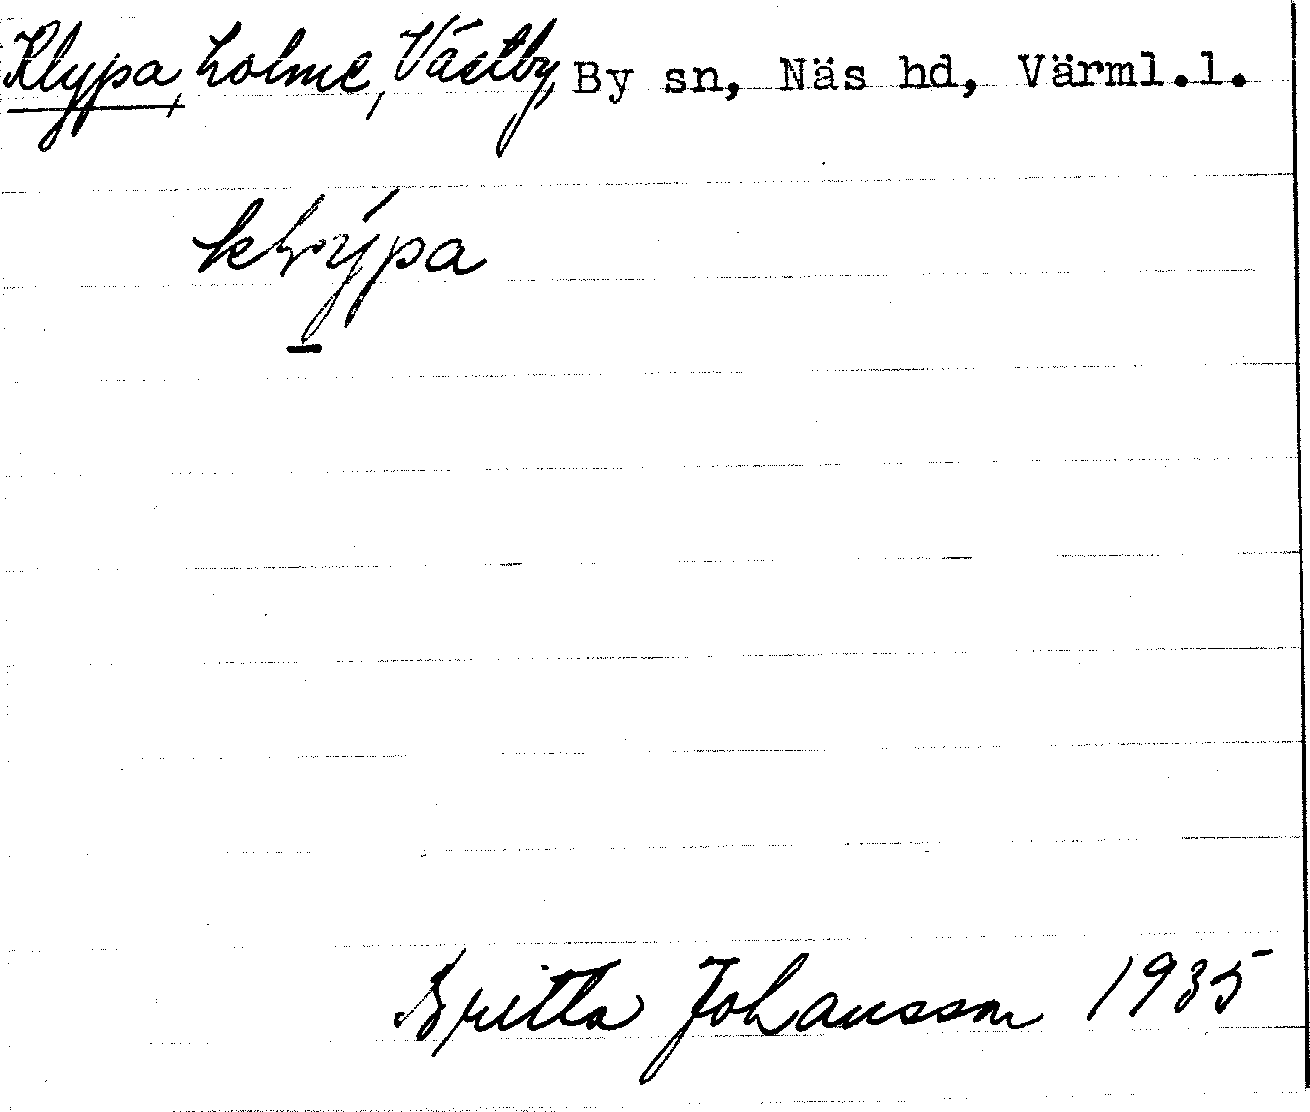 Klypa, holme, Västby, By sn, Näs hd, Värml.l.
Britta Johansson 1935